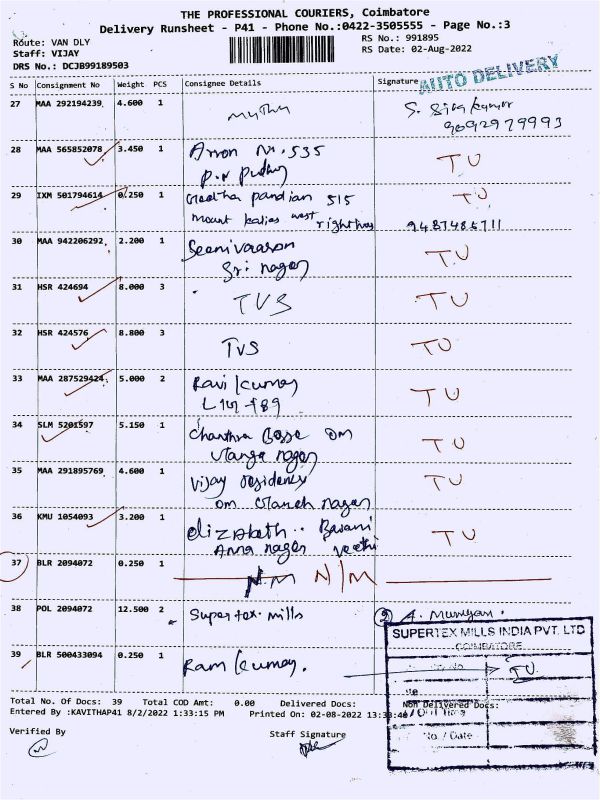 THE PROFESSIONAL COURIERS, Coimbatore
Delivery Runsheet - P41 - Phone No.:0422-3505555 - Page No.:3
Route: VAN DLY
Staff: VIJAY
DRS No.: DCJB99189503
RS No.: 991895
RS Date: 02-Aug-2022
AUTO DELIVERY
S No Consignment No Weight PCS Consignee Details Signature
27 MAA 292194239 4.600 1 S. Siva kumar
9092979993
28 MAA 565852078 3.450 1 535 TU
P.N
29 IXM 501794614 0.250 1 pandian 515 TU
mount west 9487485711
30 MAA 942206292 2.200 1 Seenivaasan TU
Sri nagar
31 HSR 424694 8.000 3 TVS TU
32 HSR 424576 8.800 3 TVS TU
33 MAA 287529424 5.000 2 Ravi kumar TU
34 SLM 5201597 5.150 1 om TU
nagar
35 MAA 291895769 4.600 1 Vijay residency TU
om nagar
36 KMU 1054093 3.200 1 Elizabeth TU
Anna nagar veethi
37 BLR 2094072 0.250 1 N.M N/M
38 POL 2094072 12.500 2 Supertex mills A. Murugan.
39 BLR 500433094 0.250 1 Ram kumar. TU.
SUPERTEX MILLS INDIA PVT. LTD
COIMBATORE
No. / Date
Total No. Of Docs: 39 Total COD Amt: 0.00 Delivered Docs: Non Delivered Docs:
Entered By :KAVITHAP41 8/2/2022 1:33:15 PM Printed On: 02-08-2022
Verified By Staff Signature